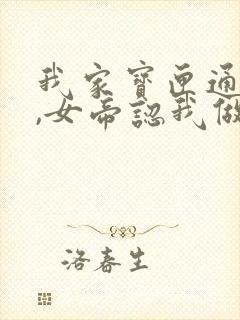 我家寶匣通
,女帝認我做
洛春生